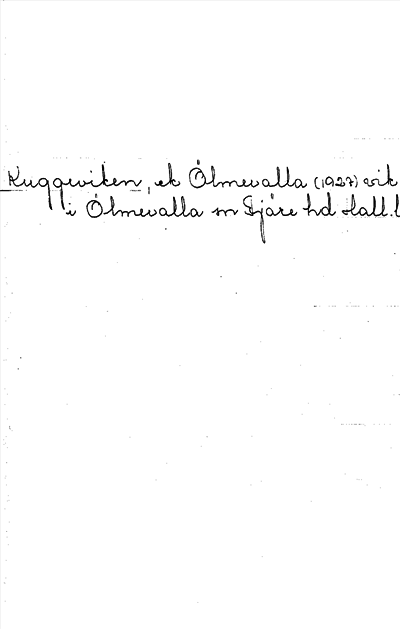 Kuggeviken, ek Ölmevalla (1927) vik
i Ölmevalla sn Fjäre hd Hall. l